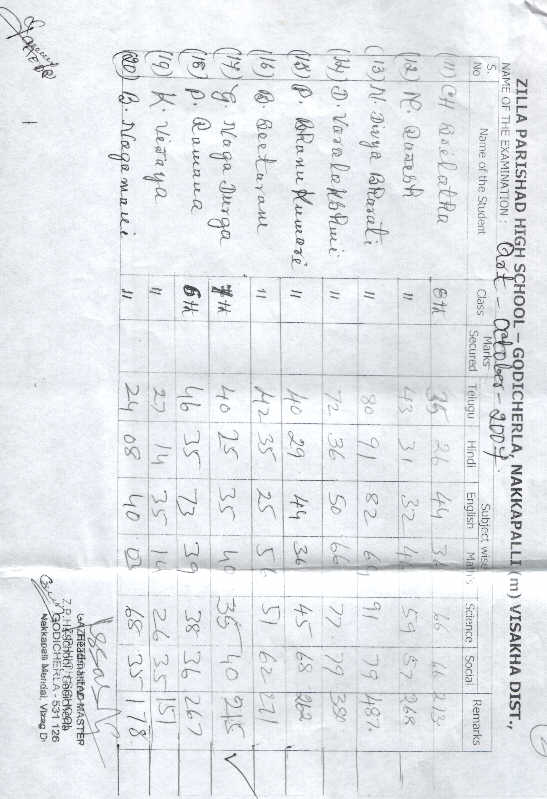 ZILLA PARISHAD HIGH SCHOOL – GODICHERLA, NAKKAPALLI (m) VISAKHA DIST.,
NAME OF THE EXAMINATION : Qrt - October - 2007
S. No Name of the Student Class Marks Secured Telugu Hindi Subject wise English Maths Science Social Remarks
(11) CH 8th 35 26 44 36 66 213
(12) R. Rajesh 11 43 31 32 59 57 268
(13) N. Divya Bharati 11 80 91 82 91 79 487
(14) D. Varalakshmi 11 72 36 50 66 77 79
(15) P. Bhanu Kumari 11 40 29 44 36 45 68 262
(16) B Seeturam 11 42 35 25 56 51 62 271
(17) G. Naga Durga 7th 40 25 35 40 35 40 215
(18) P. Ramana 6th 46 35 73 39 38 36 267
(19) K. Vijaya 11 27 14 35 14 26 35 151
(20) B. Nagamani 11 24 08 40 03 68 35 178
GODICHERLA - 531 126
Nakkapalli Mandal, Vizag D